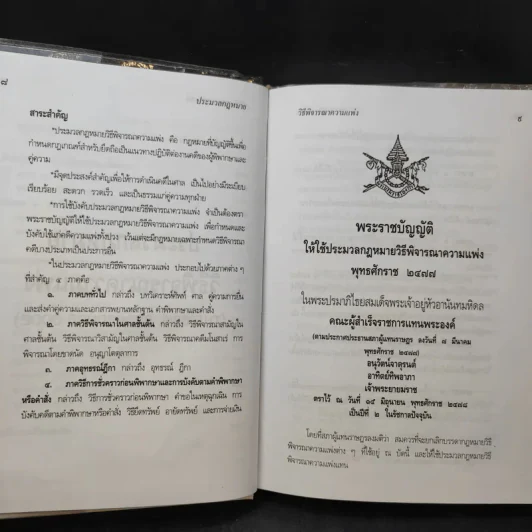 ๘
ประมวลกฎหมาย
สาระสำคัญ
"ประมวลกฎหมายวิธีพิจารณาความแพ่ง คือ กฎหมายที่บัญญัติขึ้นเพื่อ
กำหนดกฎเกณฑ์สำหรับยึดถือเป็นแนวทางปฏิบัติต่องานคดีของผู้พิพากษาและ
คู่ความ
"มีจุดประสงค์สำคัญเพื่อให้การดำเนินคดีในศาล เป็นไปอย่างมีระเบียบ
เรียบร้อย สะดวก รวดเร็ว และเป็นธรรมแก่คู่ความทุกฝ่าย
"การใช้บังคับประมวลกฎหมายวิธีพิจารณาความแพ่ง จำเป็นต้องตรา
พระราชบัญญัติให้ใช้ประมวลกฎหมายวิธีพิจารณาความแพ่ง เพื่อกำหนดและ
บังคับใช้แก่คดีความแพ่งทั้งปวง เว้นแต่จะมีกฎหมายเฉพาะกำหนดวิธีพิจารณา
คดีบางประเภทเป็นประการอื่น
"ในประมวลกฎหมายวิธีพิจารณาความแพ่ง ประกอบไปด้วยภาคต่าง ๆ
ที่สำคัญ ๔ ภาคคือ
๑. ภาคบททั่วไป กล่าวถึง บทวิเคราะห์ศัพท์ ศาล คู่ความการยื่น
และส่งคำคู่ความและเอกสารพยานหลักฐาน คำพิพากษาและคำสั่ง
๒. ภาควิธีพิจารณาในศาลชั้นต้น กล่าวถึง วิธีพิจารณาสามัญใน
ศาลชั้นต้น วิธีพิจารณาวิสามัญในศาลชั้นต้น วิธีพิจารณาคดีมโนสาเร่ การ
พิจารณาโดยขาดนัด อนุญาโตตุลาการ
๓. ภาคอุทธรณ์ฎีกา กล่าวถึง อุทธรณ์ ฎีกา
๔. ภาควิธีการชั่วคราวก่อนพิพากษาและการบังคับตามคำพิพากษา
หรือคำสั่ง กล่าวถึง วิธีการชั่วคราวก่อนพิพากษา คำขอในเหตุฉุกเฉิน การ
บังคับคดีตามคำพิพากษาหรือคำสั่ง วิธียึดทรัพย์ อายัดทรัพย์ และการจ่ายเงิน
วิธีพิจารณาความแพ่ง
๙
พระราชบัญญัติ
ให้ใช้ประมวลกฎหมายวิธีพิจารณาความแพ่ง
พุทธศักราช ๒๔๗๗
ในพระปรมาภิไธยสมเด็จพระเจ้าอยู่หัวอานันทมหิดล
คณะผู้สำเร็จราชการแทนพระองค์
(ตามประกาศประธานสภาผู้แทนราษฎร ลงวันที่ ๘ มีนาคม
พุทธศักราช ๒๔๗๗)
อนุวัตน์จาตุรนต์
อาทิตย์ทิพอาภา
เจ้าพระยายมราช
ตราไว้ ณ วันที่ ๑๕ มิถุนายน พุทธศักราช ๒๔๗๘
เป็นปีที่ ๒ ในรัชกาลปัจจุบัน
โดยที่สภาผู้แทนราษฎรลงมติว่า สมควรที่จะยกเลิกบรรดากฎหมายวิธี
พิจารณาความแพ่งต่าง ๆ ที่ใช้อยู่ ณ บัดนี้ และให้ใช้ประมวลกฎหมายวิธี
พิจารณาความแพ่งแทน